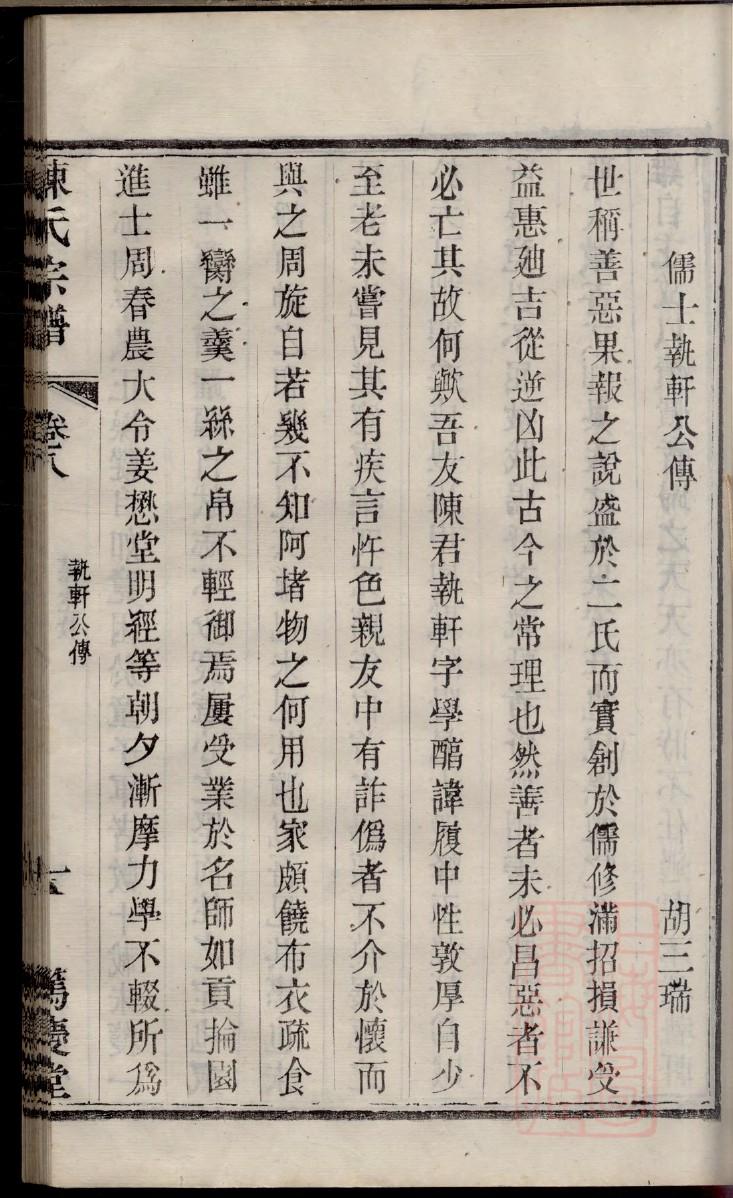 儒士執軒公傳 胡三瑞
世稱善惡果報之說盛於二氏而實創於儒修滿招損謙受
益惠廸吉從逆凶此古今之常理也然善者未必昌惡者不
必亡其故何歟吾友陳君執軒字學醕諱履中性敦厚自少
至老未嘗見其有疾言忤色親友中有詐僞者不介於懷而
與之周旋自若幾不知阿堵物之何用也家頗饒布衣疏食
雖一臠之羹一絲之帛不輕御焉屢受業於名師如貢掄園
進士周春農大令姜懋堂明經等朝夕漸摩力學不輟所爲
陳氏宗譜 卷八 執軒公傳 篤慶堂